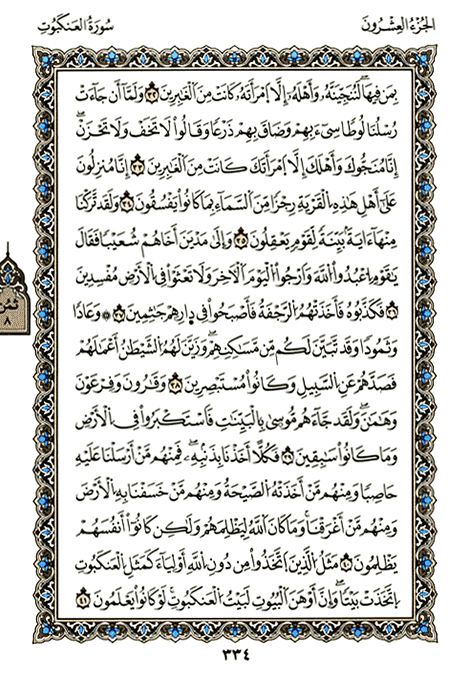 الجُزْءُ العِشْرُونَ
سُورَةُ العَنكَبُوتِ
بِمَن فِيهَا ۖ لَنُنَجِّيَنَّهُۥ وَأَهْلَهُۥٓ إِلَّا ٱمْرَأَتَهُۥ كَانَتْ مِنَ ٱلْغَٰبِرِينَ ٣٢ وَلَمَّآ أَن جَآءَتْ
رُسُلُنَا لُوطًا سِيٓءَ بِهِمْ وَضَاقَ بِهِمْ ذَرْعًا وَقَالُوا۟ لَا تَخَفْ وَلَا تَحْزَنْ ۖ
إِنَّا مُنَجُّوكَ وَأَهْلَكَ إِلَّا ٱمْرَأَتَكَ كَانَتْ مِنَ ٱلْغَٰبِرِينَ ٣٣ إِنَّا مُنزِلُونَ
عَلَىٰٓ أَهْلِ هَٰذِهِ ٱلْقَرْيَةِ رِجْزًا مِّنَ ٱلسَّمَآءِ بِمَا كَانُوا۟ يَفْسُقُونَ ٣٤ وَلَقَد تَّرَكْنَا
مِنْهَآ ءَايَةًۢ بَيِّنَةً لِّقَوْمٍ يَعْقِلُونَ ٣٥ وَإِلَىٰ مَدْيَنَ أَخَاهُمْ شُعَيْبًا فَقَالَ
يَٰقَوْمِ ٱعْبُدُوا۟ ٱللَّهَ وَٱرْجُوا۟ ٱلْيَوْمَ ٱلْـَٔاخِرَ وَلَا تَعْثَوْا۟ فِى ٱلْأَرْضِ مُفْسِدِينَ
٣٦ فَكَذَّبُوهُ فَأَخَذَتْهُمُ ٱلرَّجْفَةُ فَأَصْبَحُوا۟ فِى دَارِهِمْ جَٰثِمِينَ ٣٧ وَعَادًا
وَثَمُودَا۟ وَقَد تَّبَيَّنَ لَكُم مِّن مَّسَٰكِنِهِمْ ۖ وَزَيَّنَ لَهُمُ ٱلشَّيْطَٰنُ أَعْمَٰلَهُمْ
فَصَدَّهُمْ عَنِ ٱلسَّبِيلِ وَكَانُوا۟ مُسْتَبْصِرِينَ ٣٨ وَقَٰرُونَ وَفِرْعَوْنَ
وَهَٰمَٰنَ ۖ وَلَقَدْ جَآءَهُم مُّوسَىٰ بِٱلْبَيِّنَٰتِ فَٱسْتَكْبَرُوا۟ فِى ٱلْأَرْضِ
وَمَا كَانُوا۟ سَٰبِقِينَ ٣٩ فَكُلًّا أَخَذْنَا بِذَنۢبِهِۦ ۖ فَمِنْهُم مَّنْ أَرْسَلْنَا عَلَيْهِ
حَاصِبًا وَمِنْهُم مَّنْ أَخَذَتْهُ ٱلصَّيْحَةُ وَمِنْهُم مَّنْ خَسَفْنَا بِهِ ٱلْأَرْضَ
وَمِنْهُم مَّنْ أَغْرَقْنَا ۚ وَمَا كَانَ ٱللَّهُ لِيَظْلِمَهُمْ وَلَٰكِن كَانُوٓا۟ أَنفُسَهُمْ
يَظْلِمُونَ ٤٠ مَثَلُ ٱلَّذِينَ ٱتَّخَذُوا۟ مِن دُونِ ٱللَّهِ أَوْلِيَآءَ كَمَثَلِ ٱلْعَنكَبُوتِ
ٱتَّخَذَتْ بَيْتًا ۖ وَإِنَّ أَوْهَنَ ٱلْبُيُوتِ لَبَيْتُ ٱلْعَنكَبُوتِ ۖ لَوْ كَانُوا۟ يَعْلَمُونَ ٤١
ثُمُن
٨
٣٣٤